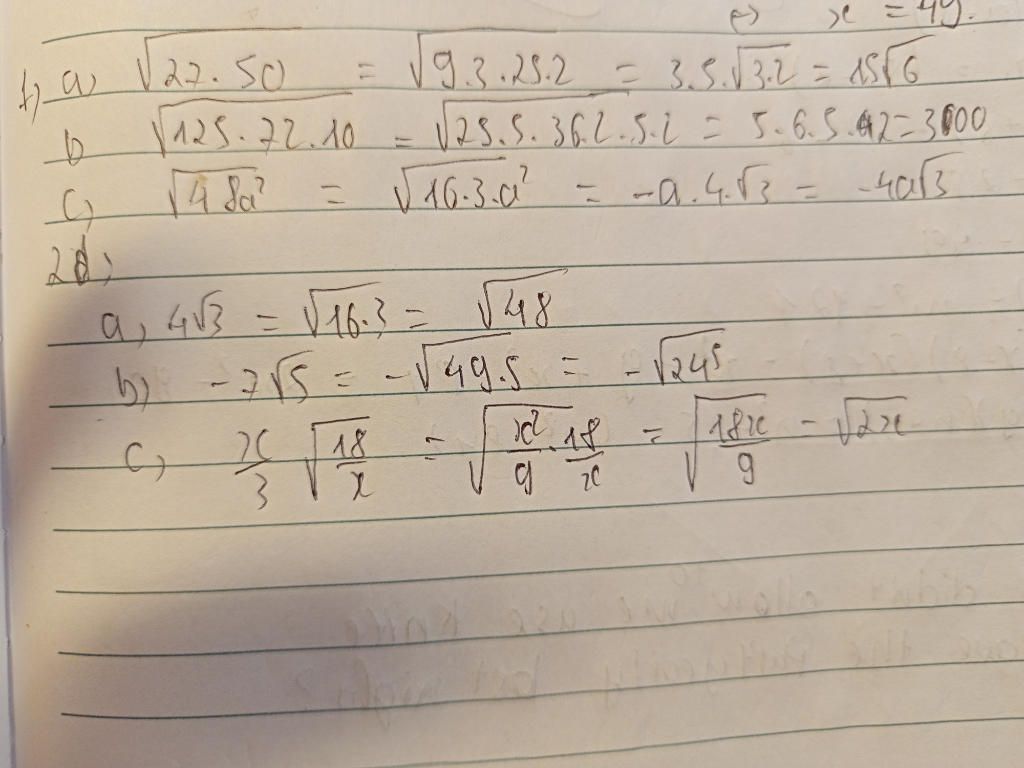 ⇔ x = 49.
1) a) √27.50 = √9.3.25.2 = 3.5.√3.2 = 15√6
b √125.72.10 = √25.5.36.2.5.2 = 5.6.5.2=300
c) √48a² = √16.3.a² = -a.4.√3 = -4a√3
2)
a, 4√3 = √16.3 = √48
b) -7√5 = -√49.5 = -√245
c) x/3 √18/x = √x²/9 . 18/x = √18x/9 = √2x